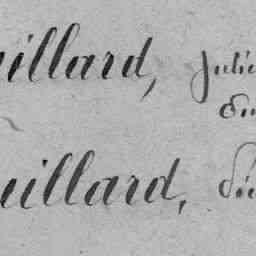 uillard, Julie
Em
uillard,